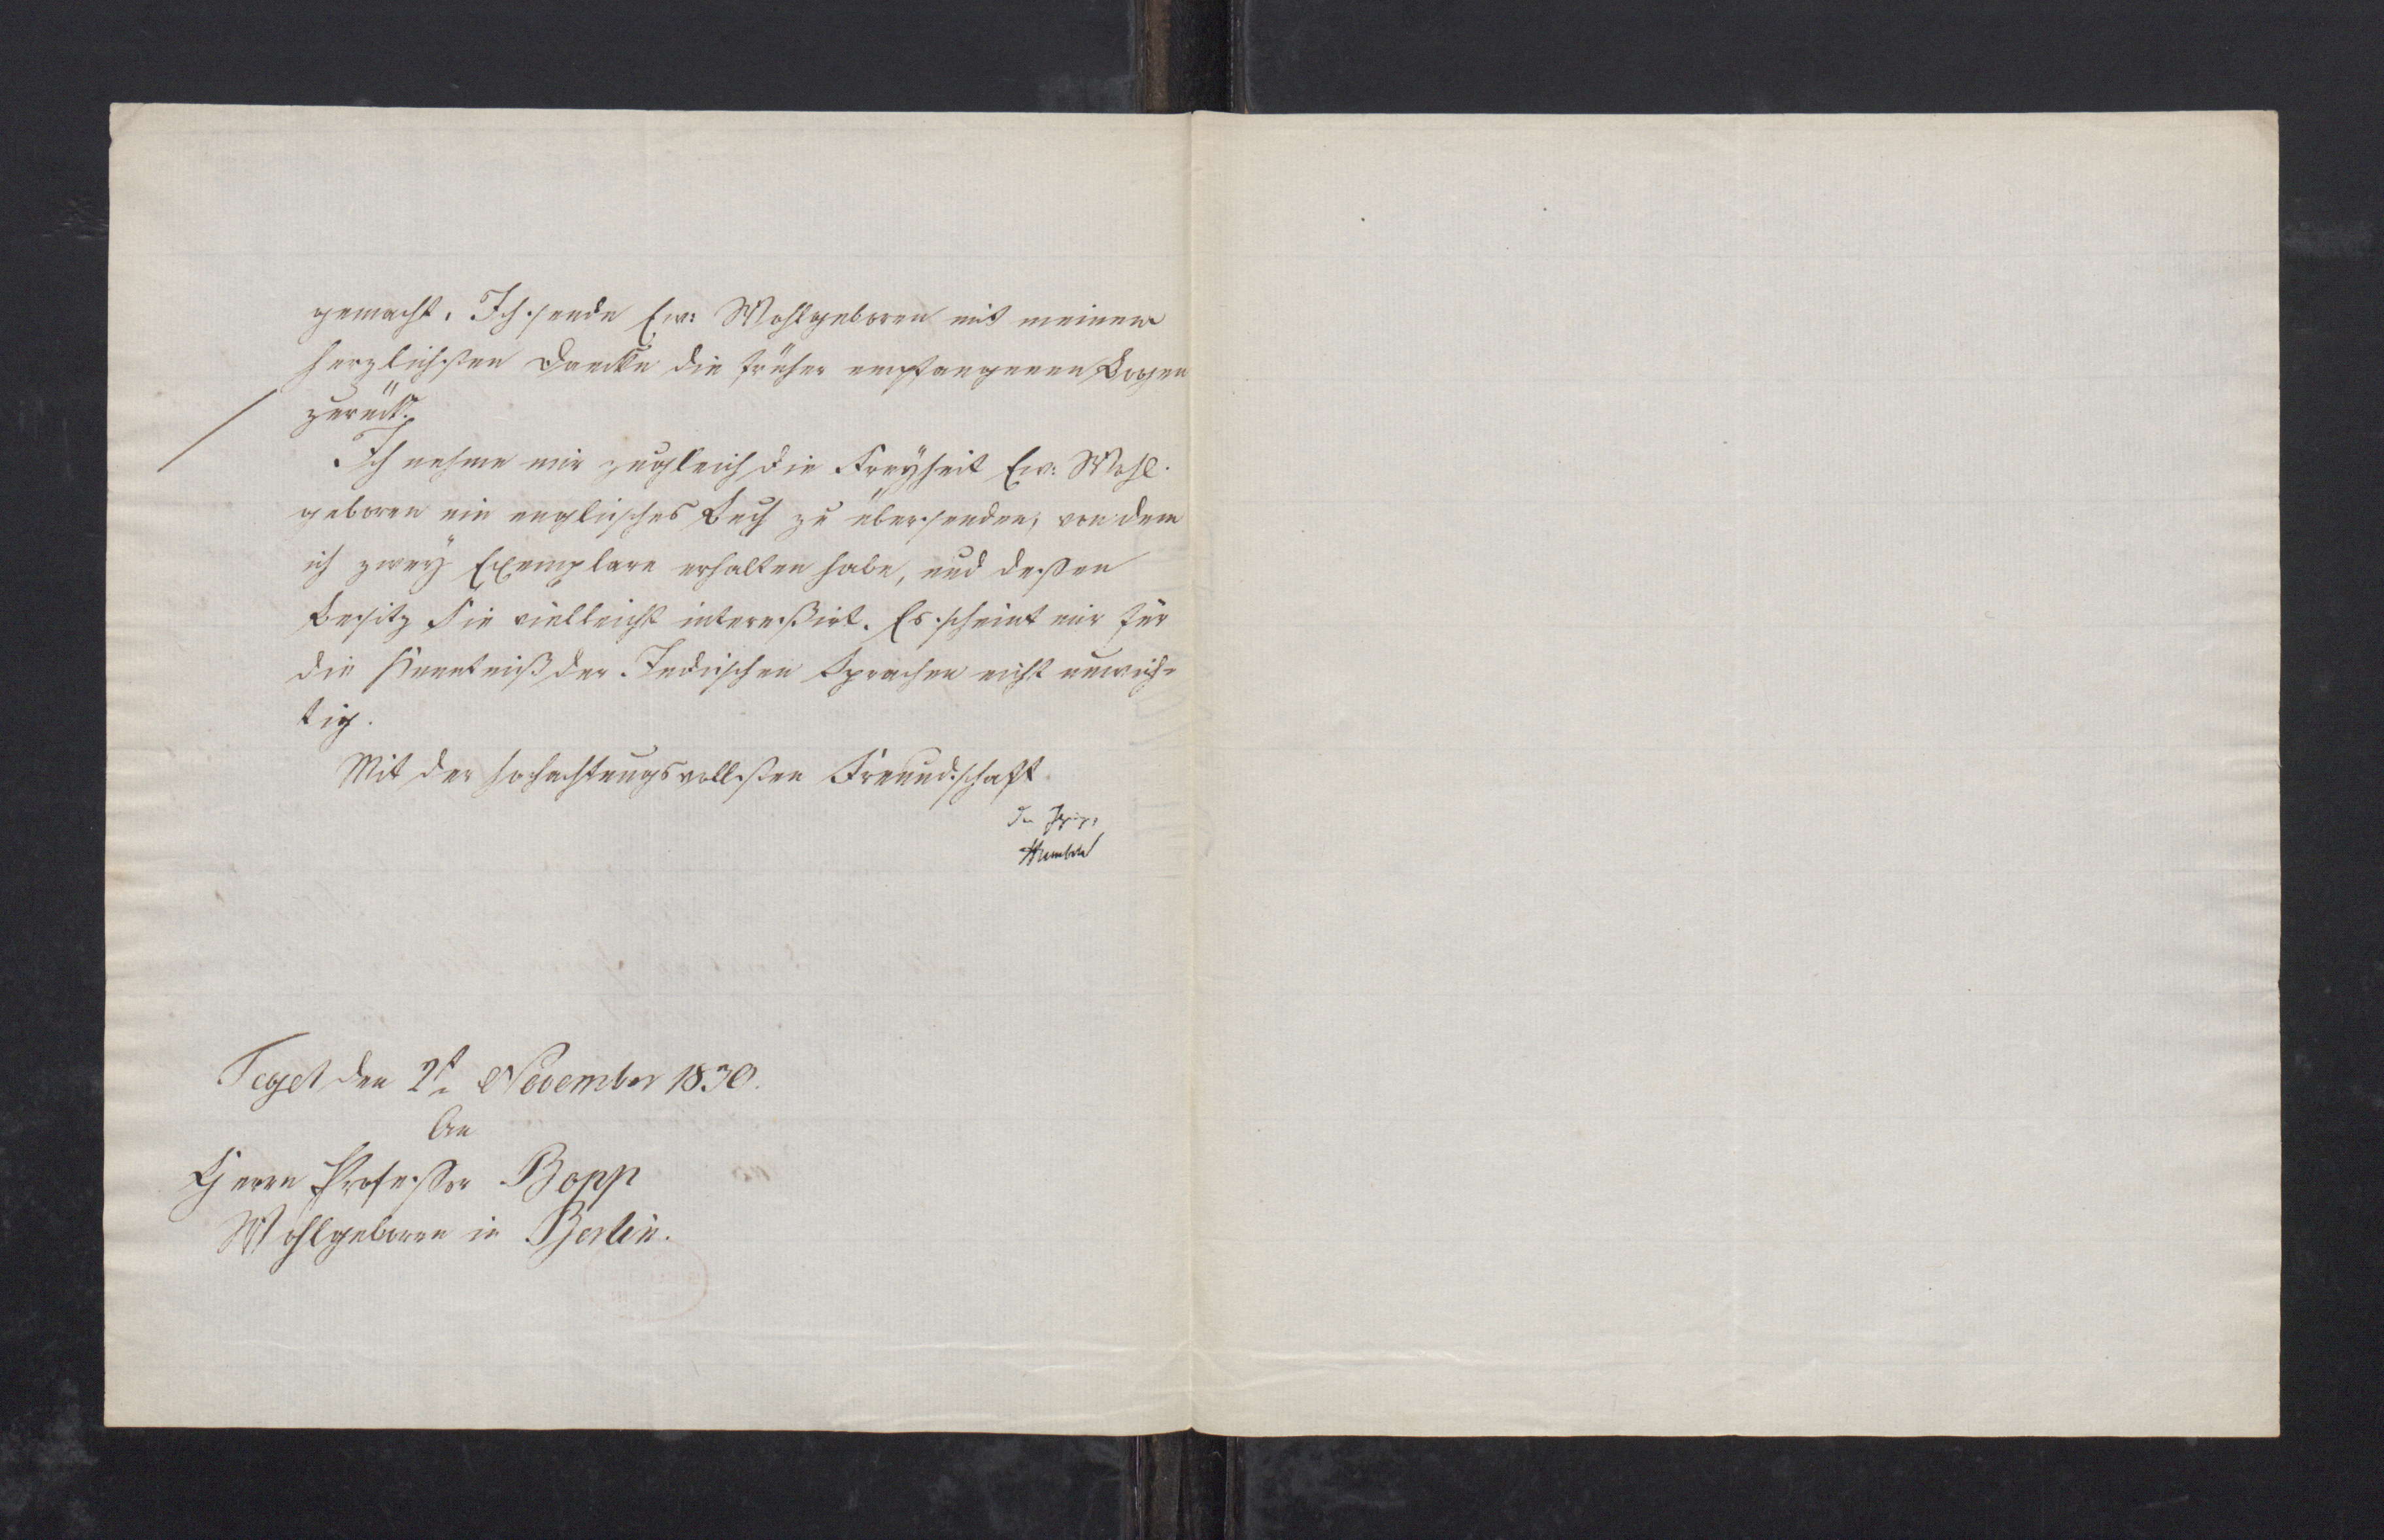 gemacht. Ich sende Ew: Wohlgeboren mit meinem
herzlichsten Danke die früher empfangenen Bogen
zurück.
Ich nehme mir zugleich die Freyheit Ew: Wohl-
geboren ein englisches Buch zu übersenden, von dem
ich zwey Exemplare erhalten habe, und deßen
Besitz Sie vielleicht intereßirt. Es scheint mir für
die Kenntniß der Indischen Sprachen nicht unwich-
tig.
Mit der hochachtungsvollsten Freundschaft
der Ihrige,
Humboldt
Tegel den 2t. November 1830.
An
Herrn Profeßor Bopp
Wohlgeboren in Berlin.